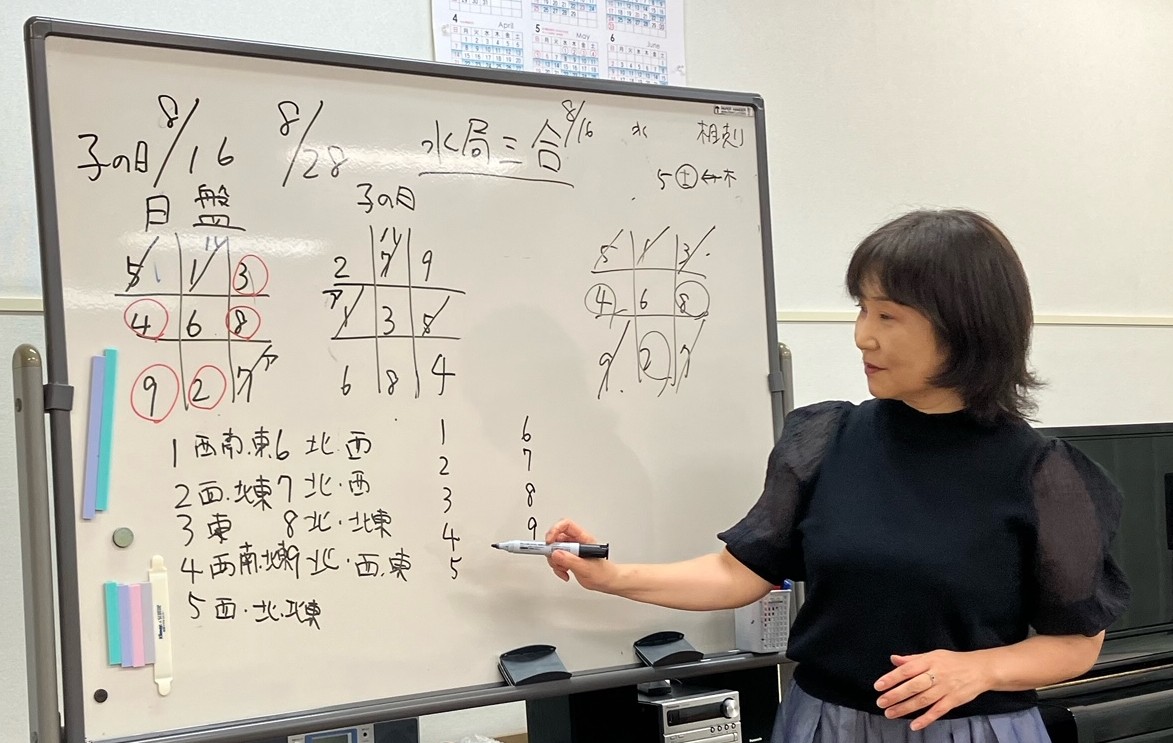 4 April 5 May 6 June
8/16 8/28 水局三合 8/16 水 相剋
子の日
5 土 ← 木
日盤 子の日
5 1 3
4 6 8
9 2 7 ア
2 7 9
ア 1 3 5
6 8 4
5 1 3
4 6 8
9 2 7
1 西南.東 6 北.西
2 西.北東 7 北.西
3 東 8 北・北東
4 西南.北東 9 北・西.東
5 西・北.北東
1 6
2 7
3 8
4 9
5